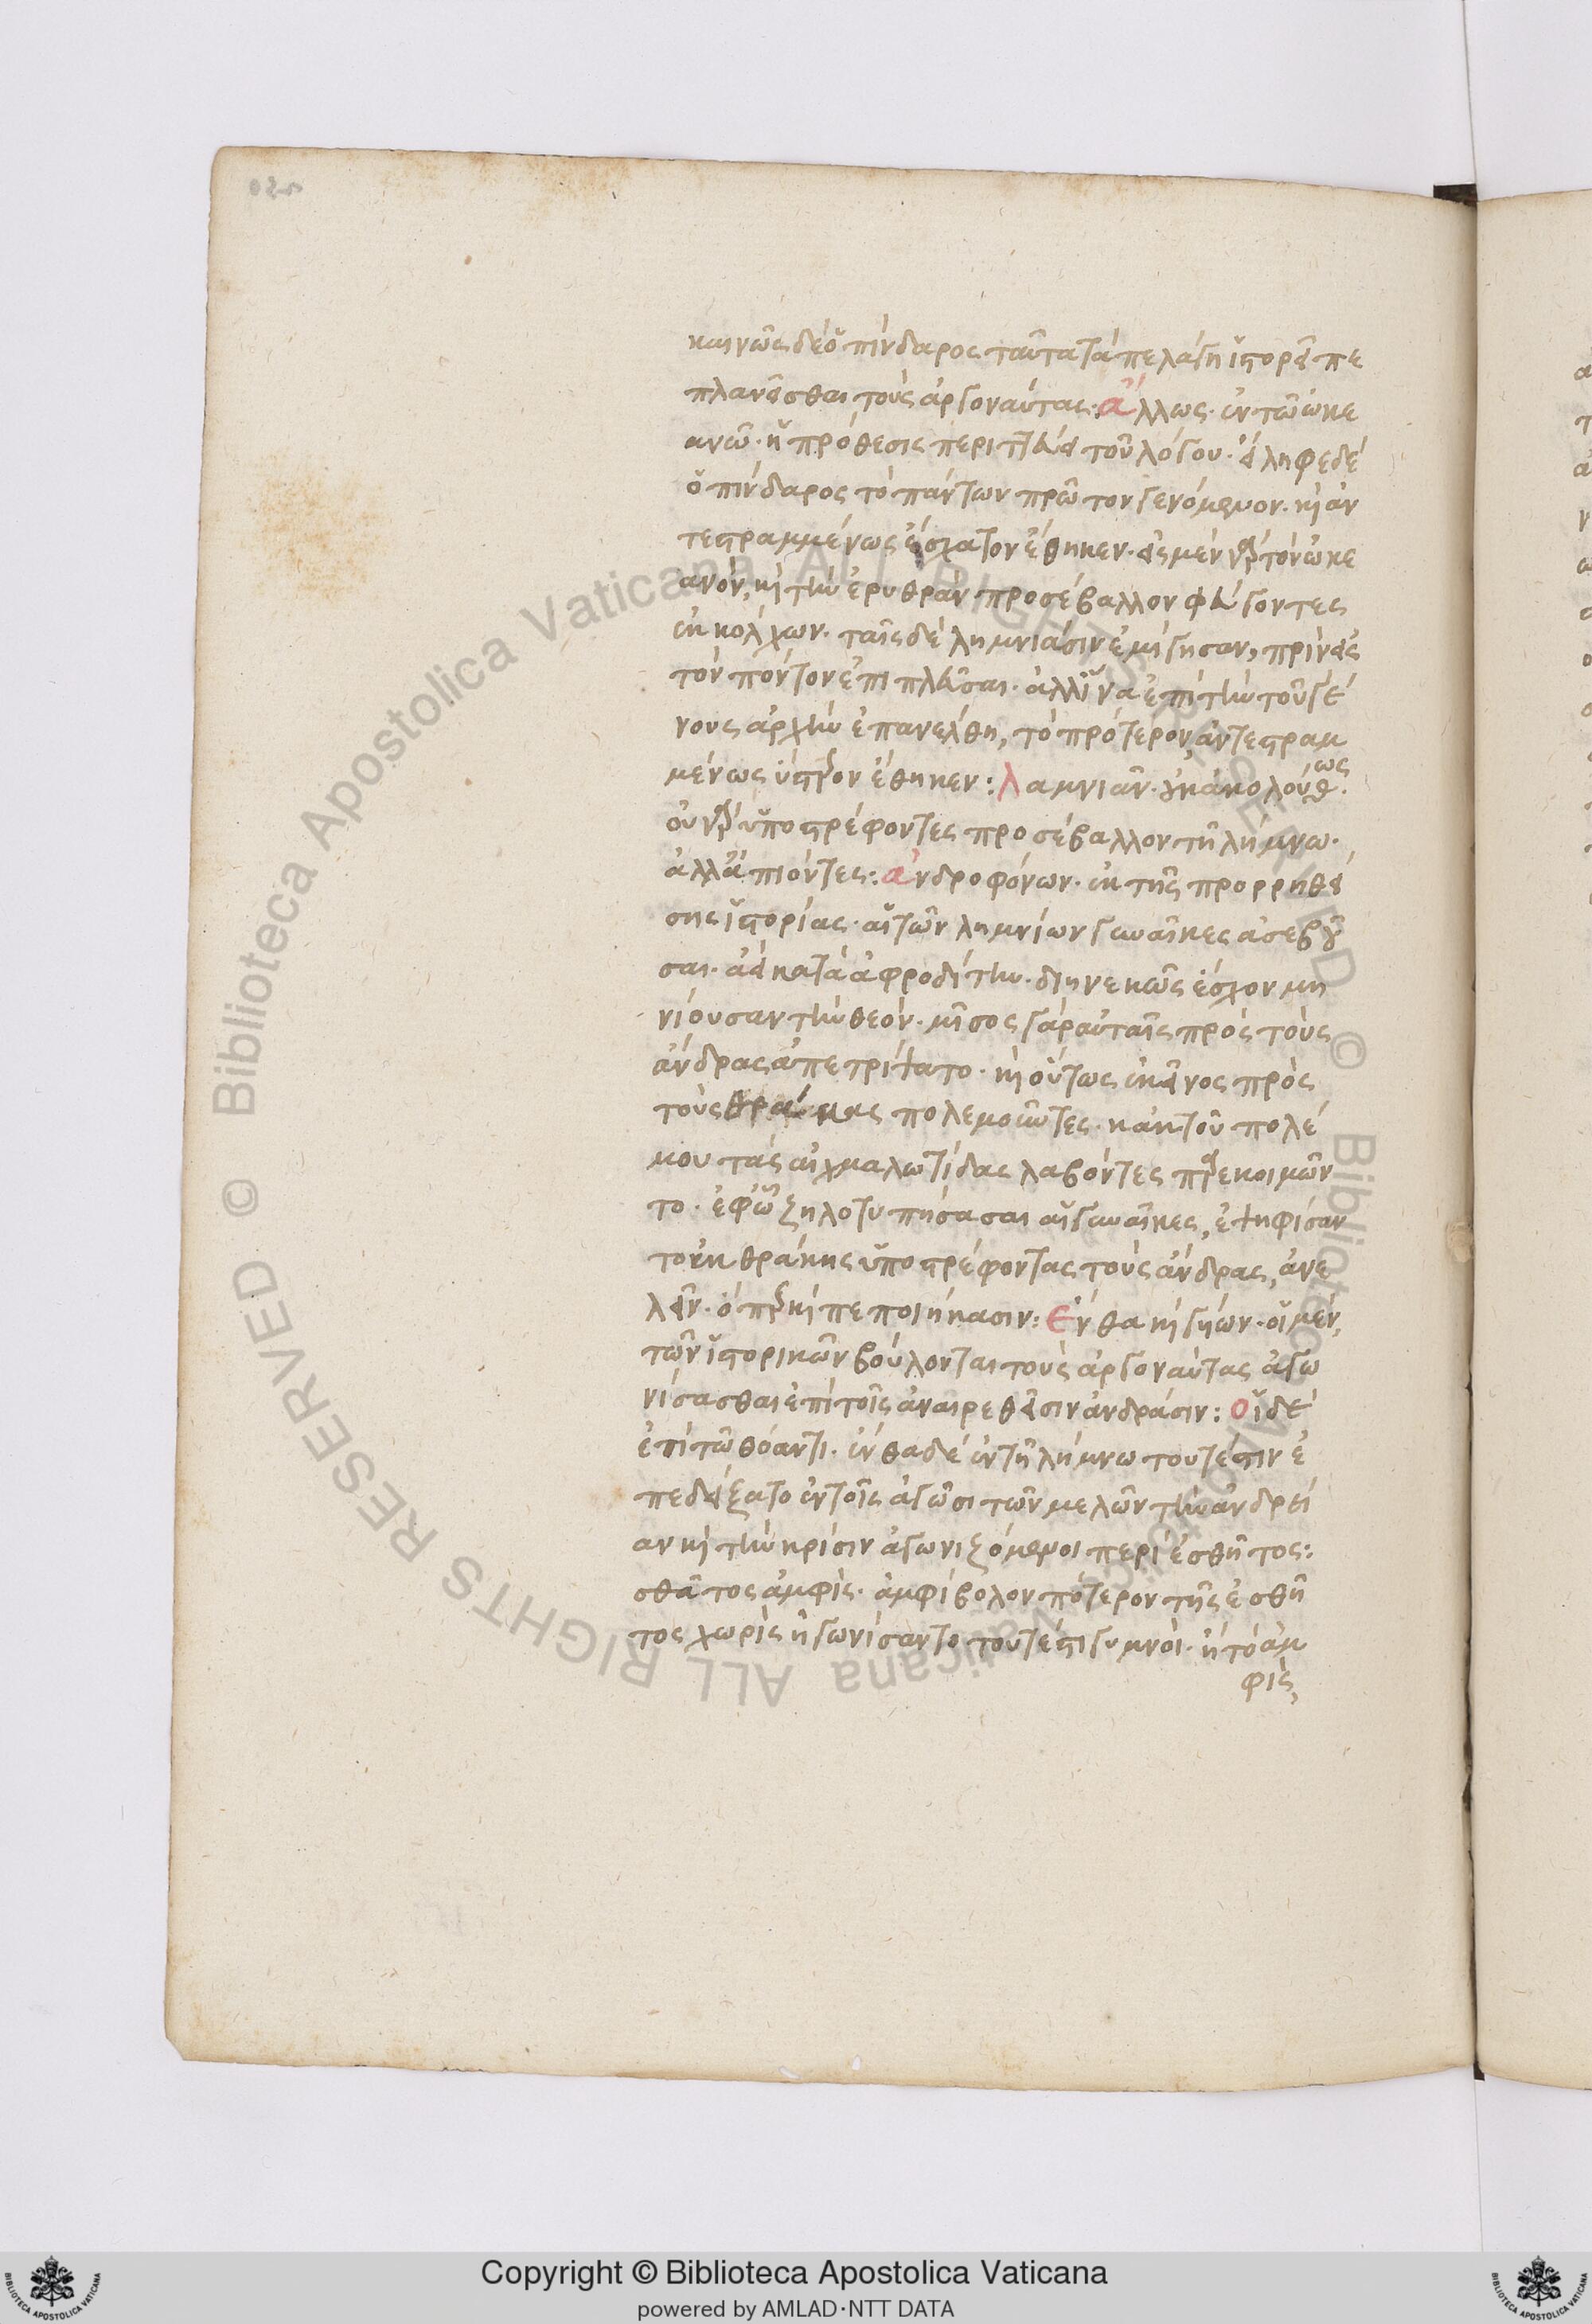 καινῶς δὲ ὁ πίνδαρος ταῦτα τὰ πελάγη ἱστορεῖ πε
πλανεῖσθαι τοὺς ἀργοναύτας· ἄλλως· ἐν τῶ ὠκε
ανῶ· ἡ πρόθεσις περιττεύει τοῦ λόγου· εἴληφε δὲ
ὁ πίνδαρος τὸ πάντων πρῶτον γενόμενον· κὶ ἀν
τεστραμμένως ἔσχατον ἔθηκεν· εἰς μὲν γὰρ τὸν ὠκε
ανὸν, κὶ τὴν ἐρυθρὰν προσέβαλλον φεύγοντες
ἐκ κόλχων· ταῖς δὲ λημνιάσιν ἐμίγησαν, πρὶν εἰς
τὸν πόντον ἐπιπλεῦσαι· ἀλλ' ἵνα ἐπὶ τὴν τοῦ γέ
νους ἀρχὴν ἐπανέλθη, τὸ πρότερον, ἀντεστραμ
μένως ὕστερον ἔθηκεν: λαμνιᾶν· οὐκ ἀκολούθως·
οὐ γὰρ ὑποστρέφοντες προσέβαλλον τῆ λήμνω·
ἀλλ' ἀπιόντες: ἀνδροφόνων· ἐκ τῆς προρρηθεί
σης ἱστορίας· αἱ τῶν λημνίων γυναῖκες ἀσεβοῦ
σαι· ἀεὶ κατὰ ἀφροδίτην· διηνεκῶς ἔσχον μη
νίουσαν τὴν θεόν· μῖσος γὰρ αὐταῖς πρὸς τοὺς
ἄνδρας ἀπετρίψατο· κὶ οὕτως ἐκεῖνος πρὸς
τοὺς θράκας πολεμοῦντες· κἀκ τοῦ πολέ
μου τὰς αἰχμαλωτίδας λαβόντες παρεκοιμῶν
το· ἐφ' ᾧ ζηλοτυπήσασαι αἱ γυναῖκες, ἐψηφίσαν
το ἐκ θράκης ὑποστρέφοντας τοὺς ἄνδρας, ἀνε
λεῖν· ὅπερ κὶ πεποιήκασιν: ἔνθα κὶ γυίων· οἱ μὲν
τῶν ἱστορικῶν βούλονται τοὺς ἀργοναύτας ἀγω
νίσασθαι ἐπὶ τοῖς ἀναιρεθεῖσιν ἀνδράσιν: οἱ δὲ
ἐπὶ τῶ θόαντι· ἐνθαδὲ ἐν τῆ λήμνω τουτέστιν ἐ
πεδείξατο ἐν τοῖς ἀγῶσι τῶν μελῶν τὴν ἀνδρεί
αν κὶ τὴν κρίσιν ἀγωνιζόμενοι περὶ ἐσθῆτος:
σθᾶτος ἀμφίς· ἀμφίβολον πότερον τῆς ἐσθῆ
τος χωρὶς ἠγωνίσαντο τουτέστι γυμνοί· ἢ τὸ ἀμ
φὶς,